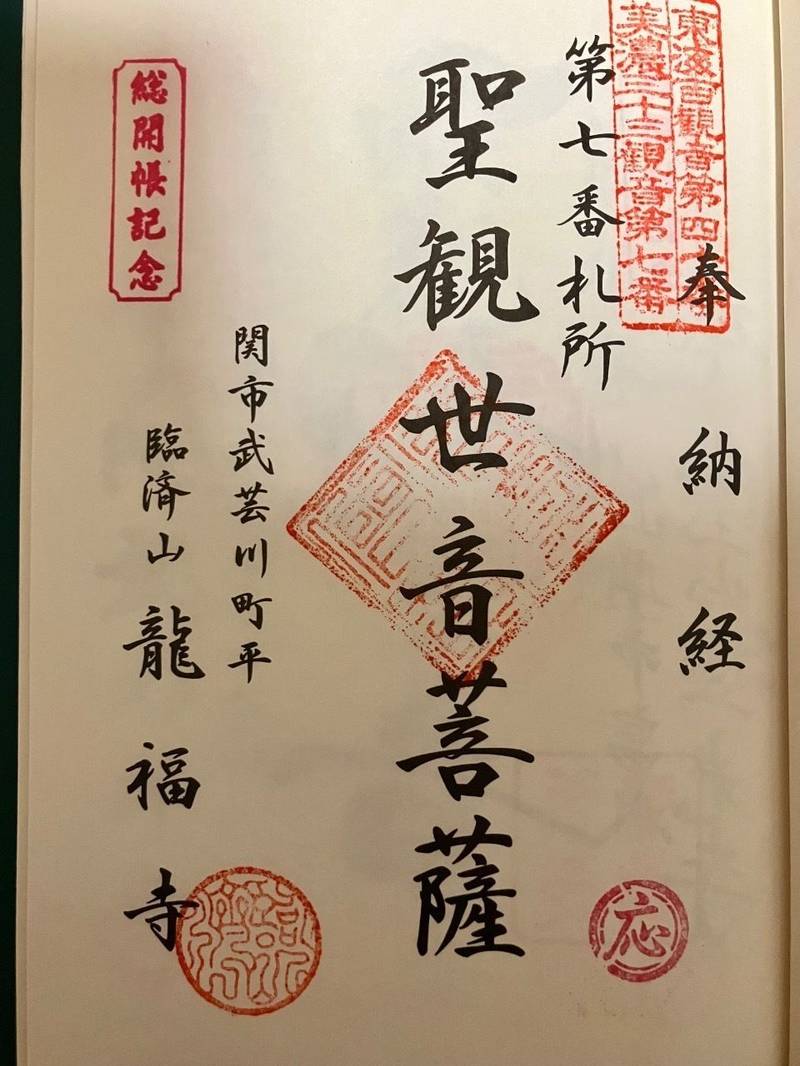 東海百観音第四十番
美濃三十三観音第七番
奉納経
第七番札所
聖観世音菩薩
応
関市武芸川町平
臨済山龍福寺
総開帳記念